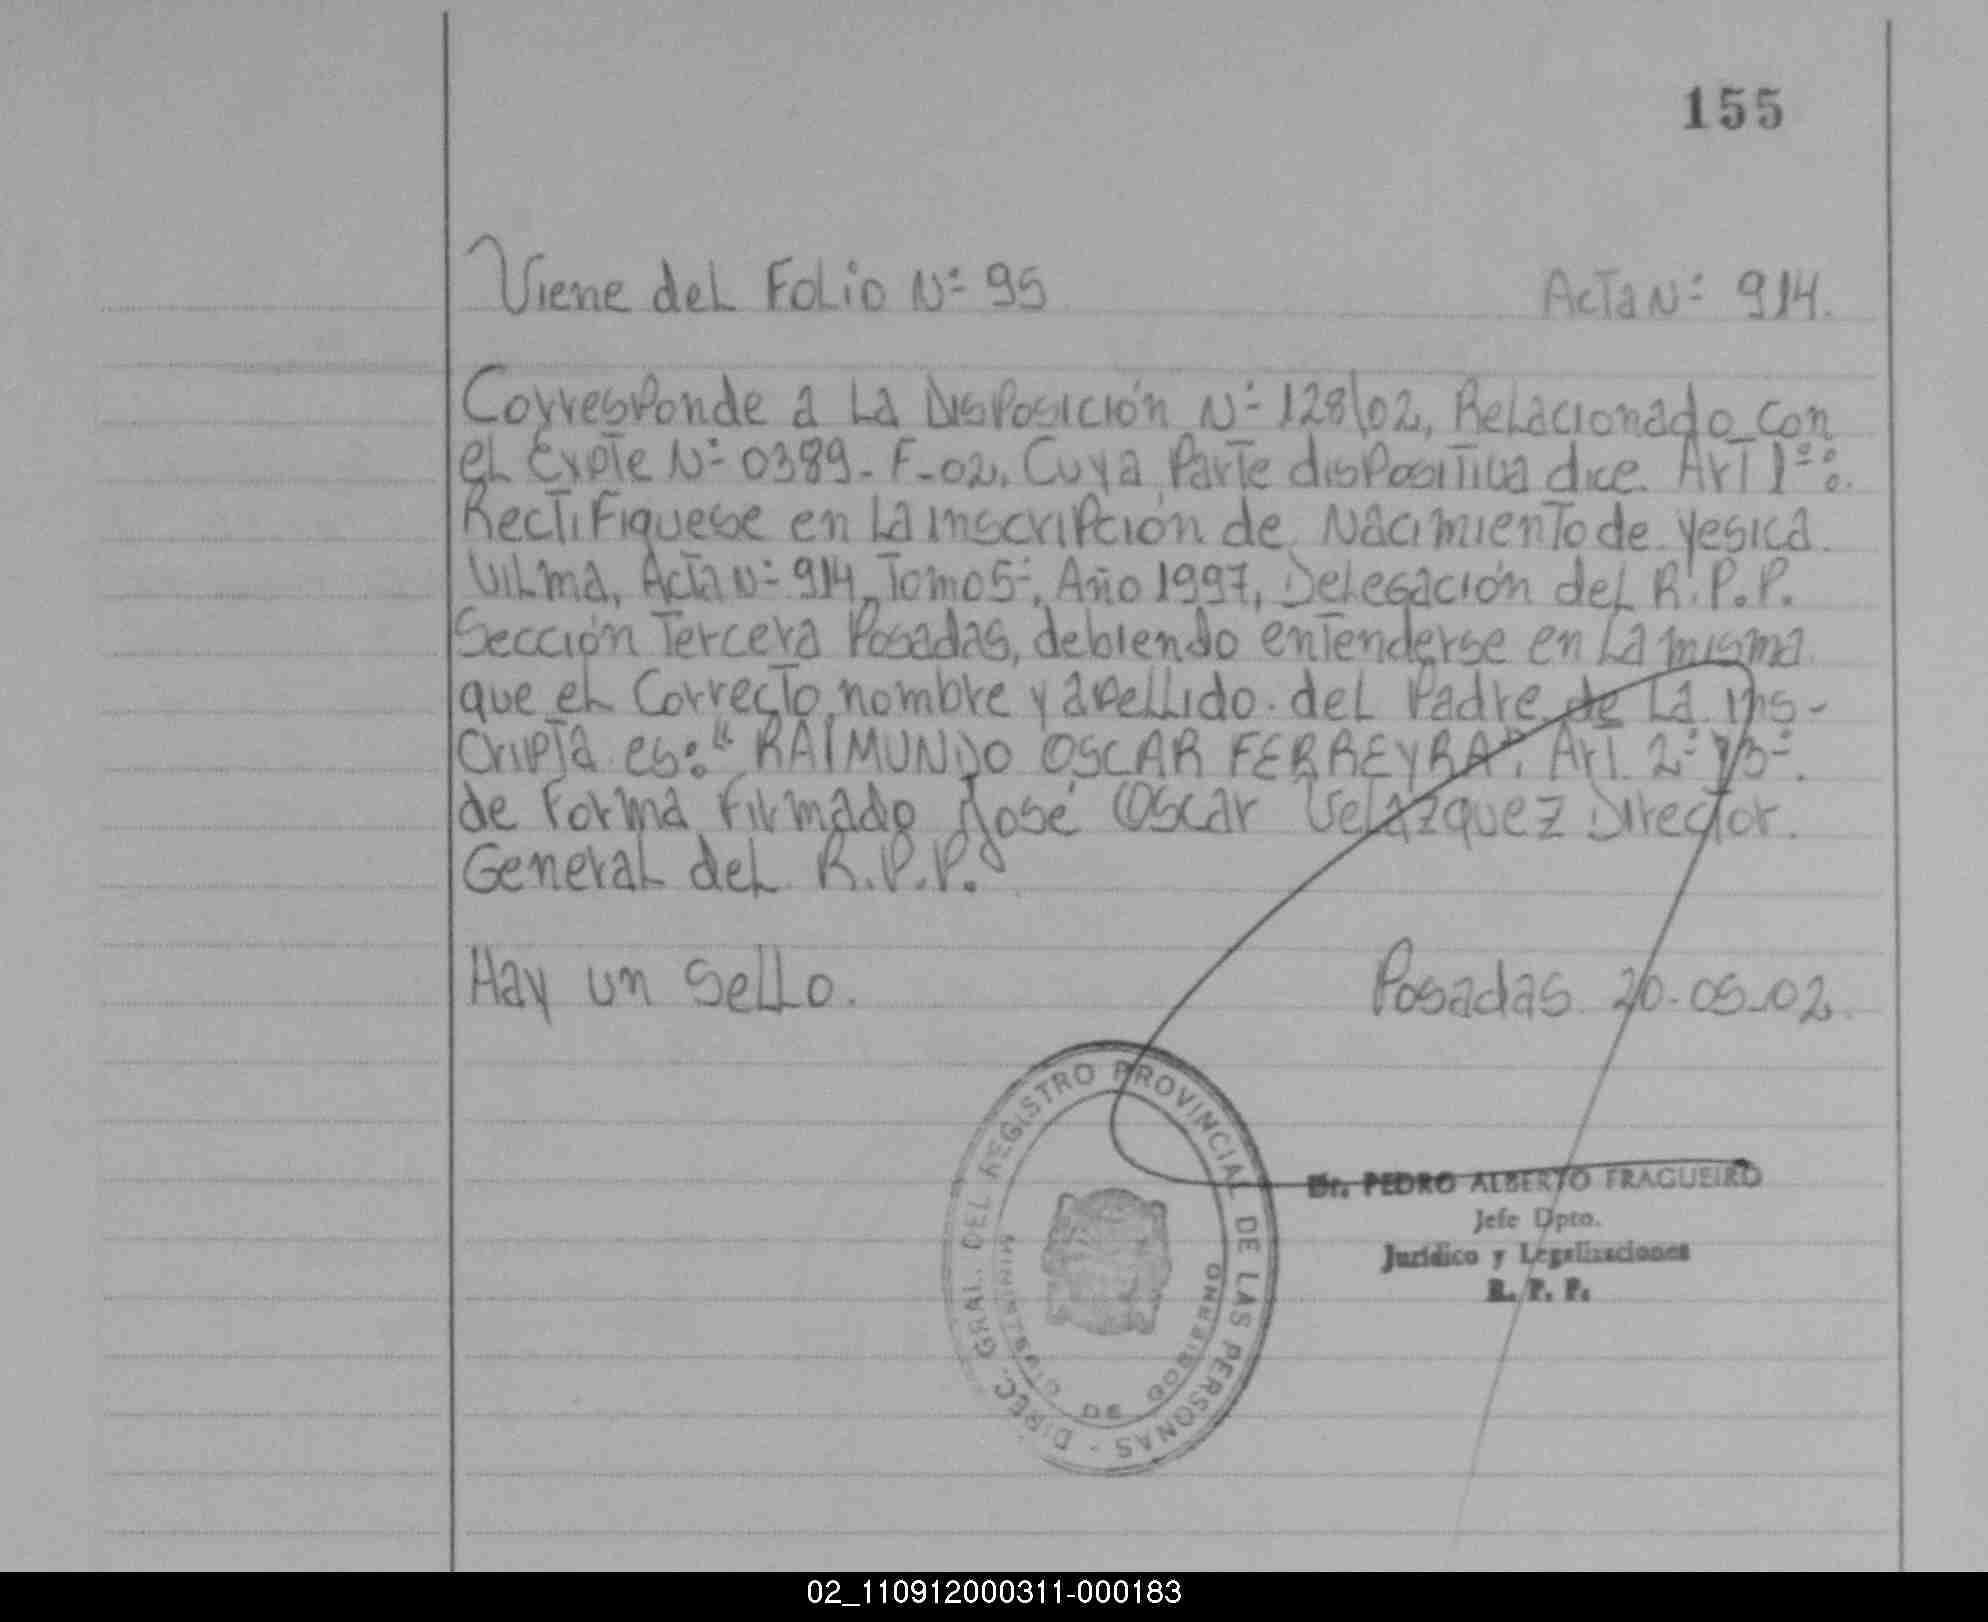 155
Viene del Folio Nº 95 Acta Nº 914.
Corresponde a La Disposición Nº 128/02, Relacionado con
el Expte Nº 0389-F-02, Cuya Parte dispositiva dice Art 1º:
Rectifiquese en La inscripción de Nacimiento de Yesica
Vilma, Acta Nº 914, Tomo 5º, Año 1997, Delegación del R.P.P.
Sección Tercera Posadas, debiendo entenderse en La misma
que el Correcto nombre y apellido del Padre de La ins-
cripta es: "RAIMUNDO OSCAR FERREYRA", Art. 2º y 3º.
de Forma Firmado José Oscar Velazquez Director
General del R.P.P.
Hay un Sello. Posadas 20-05-02
DIREC. GRAL. DEL REGISTRO PROVINCIAL DE LAS PERSONAS -
MINISTERIO DE GOBIERNO
Dr. PEDRO ALBERTO FRAGUEIRO
Jefe Dpto.
Jurídico y Legalizaciones
R. P. P.
02_110912000311-000183